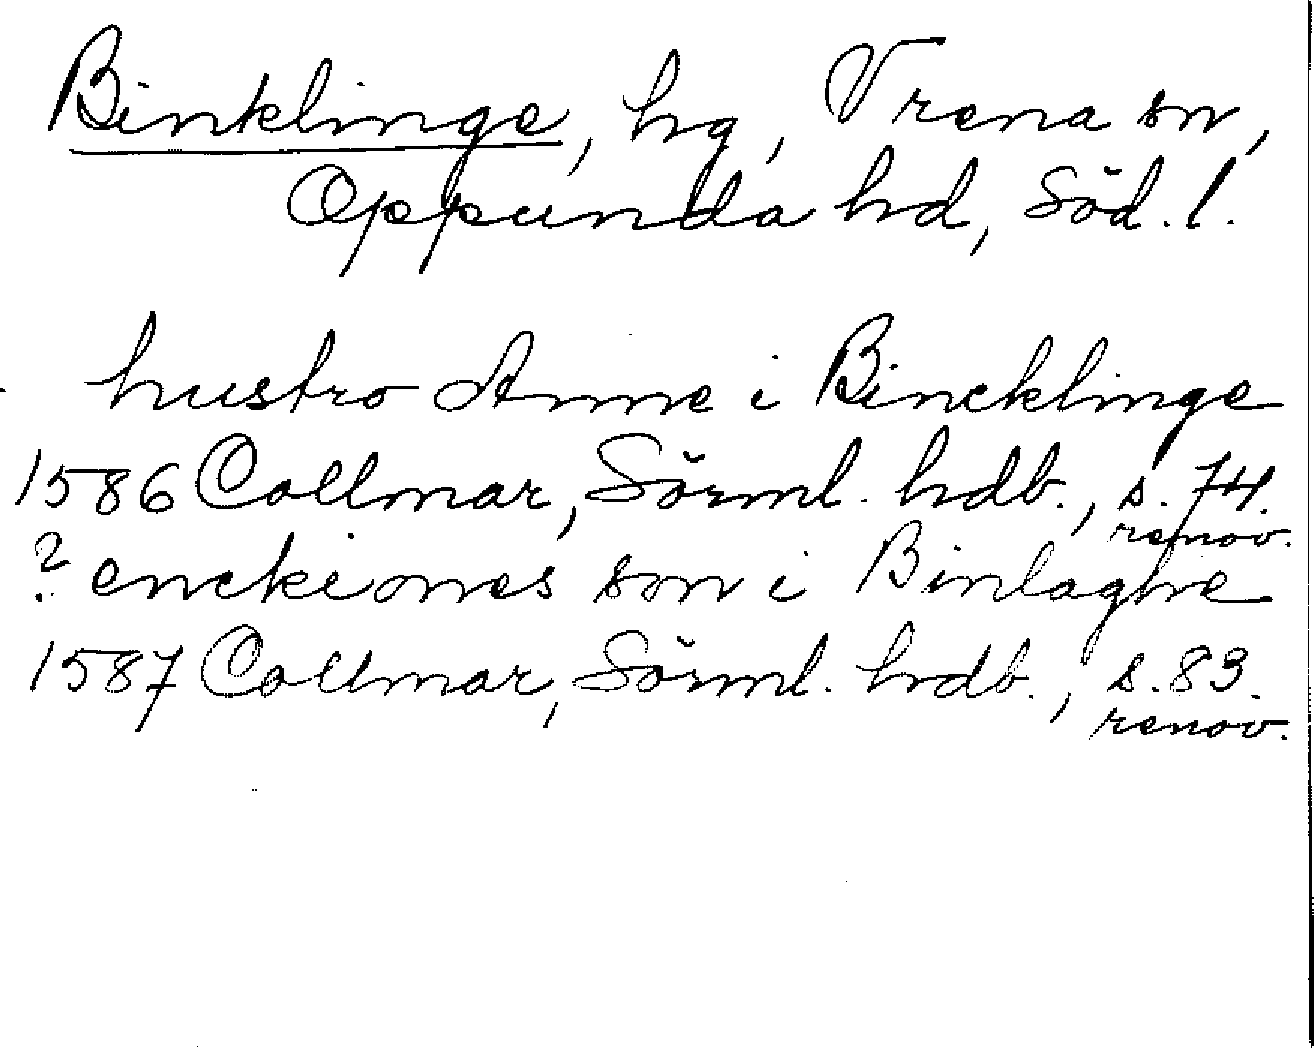 Binklinge, hg, Vrena sn,
Oppunda hd, Söd. l.
hustro Anne i Bincklinge
1586 Collmar, Sörml. hdb., s. 74.
renov.
? enckiones son i Binlaghe
1587 Collmar, Sörml. hdb., s. 83.
renov.